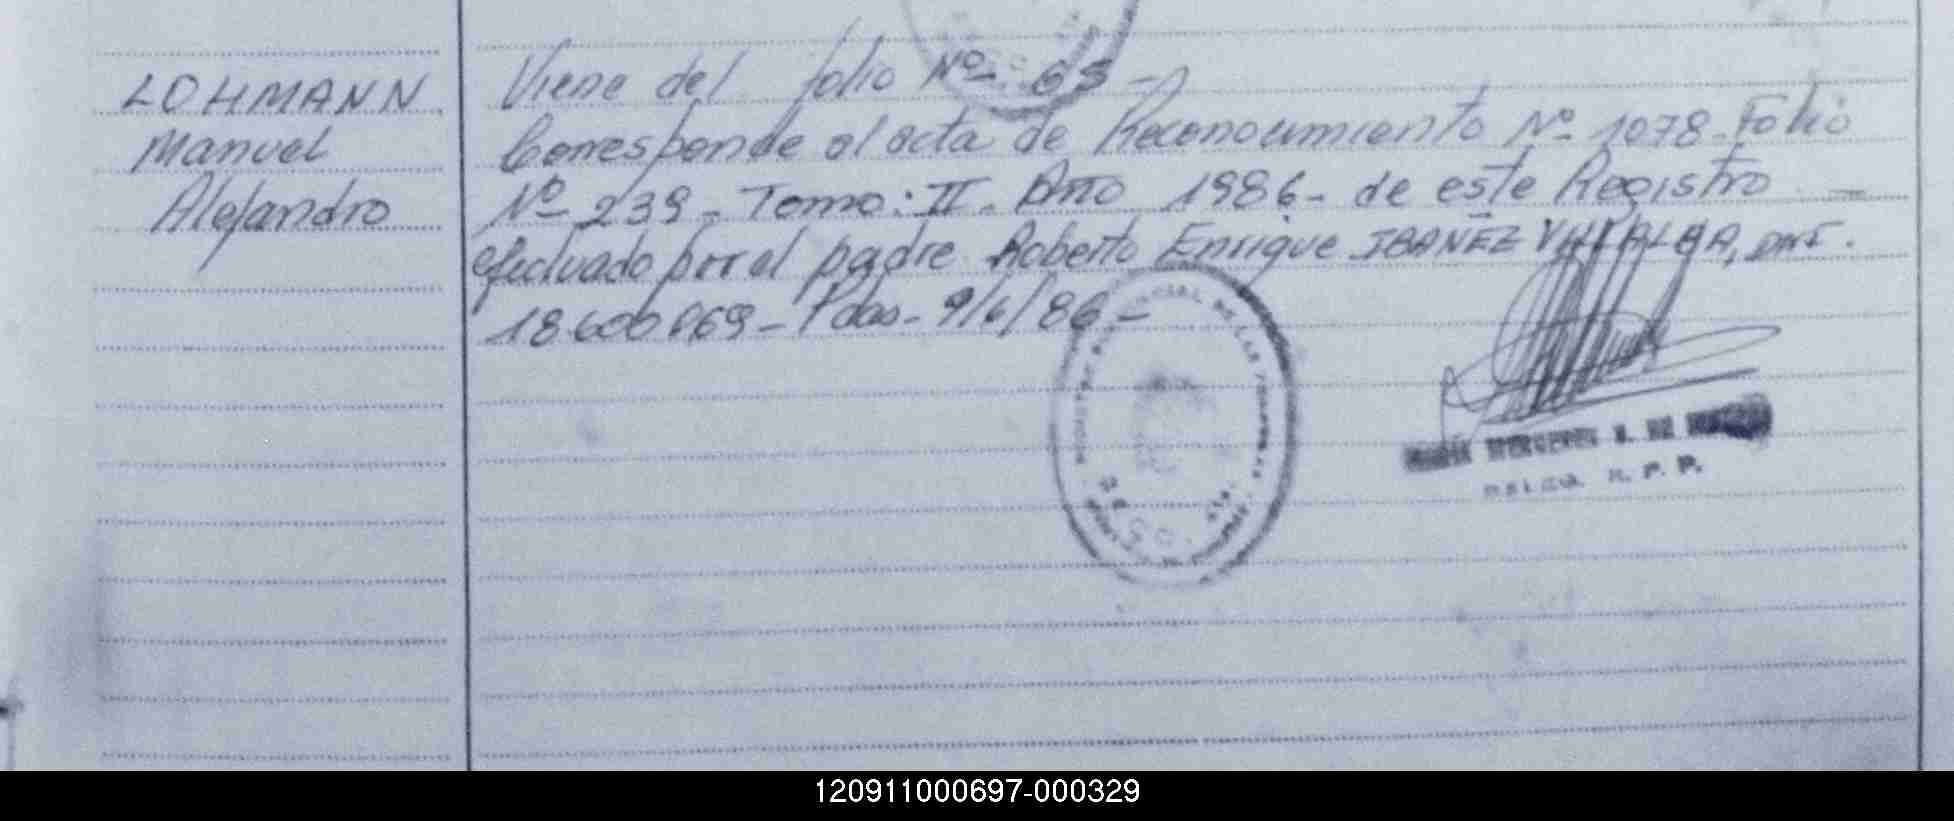 LOHMANN
Manuel
Alejandro
Viene del folio Nº 63-
Corresponde al acta de Reconocimiento Nº 1078- Folio
Nº 239- Tomo: II- Año 1986- de este Registro -
efectuado por el padre Roberto Enrique IBAÑEZ VILLALBA, DNI.
18.600.069- Pdas- 9/6/86-
R. P. P.
120911000697-000329